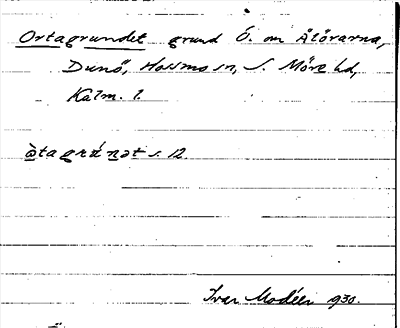 Ortagrundet grund Ö. om Ålörarna,
Dunö, Hossmo sn, S. Möre hd,
Kalm. l.
s. 12.
Ivar Modéer 1930.